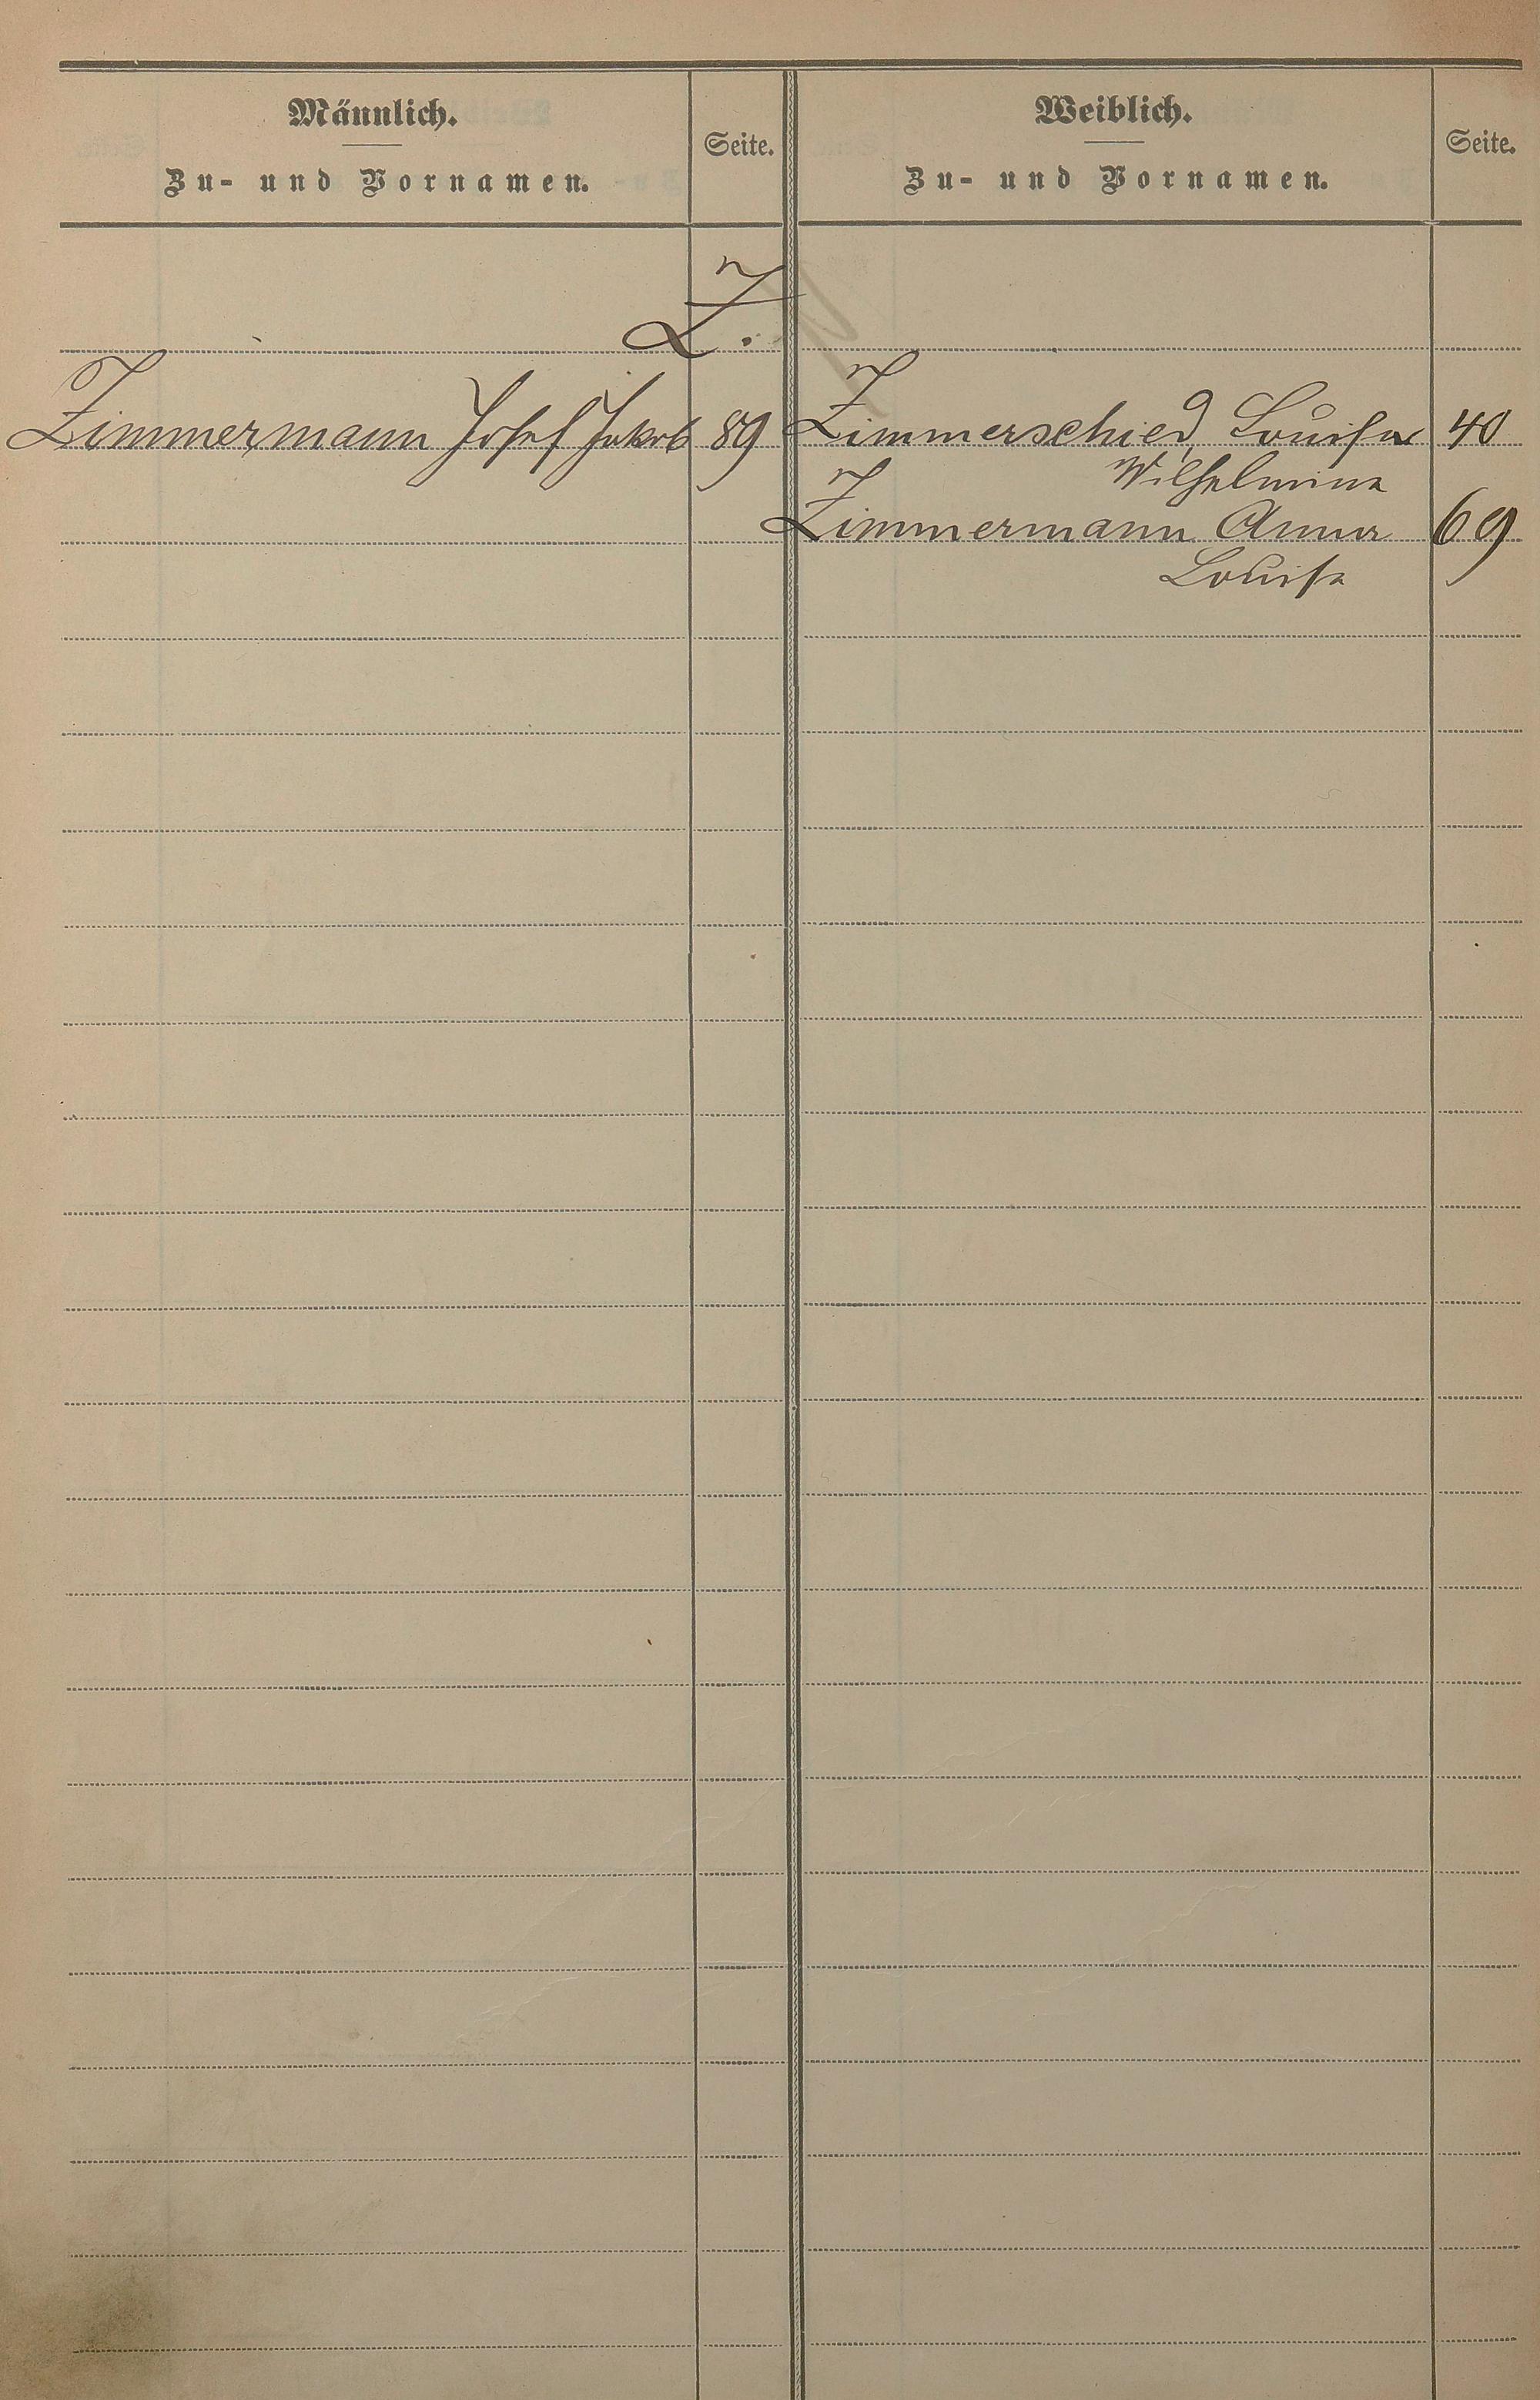 Männlich.
Zu- und Vornamen.
Seite.
Weiblich.
Zu- und Vornamen.
Seite.
Z.
Zimmermann Josef Jakob 89
Zimmerschied, Louise 40
Wilhelmine
Zimmermann Anna 69
Louise